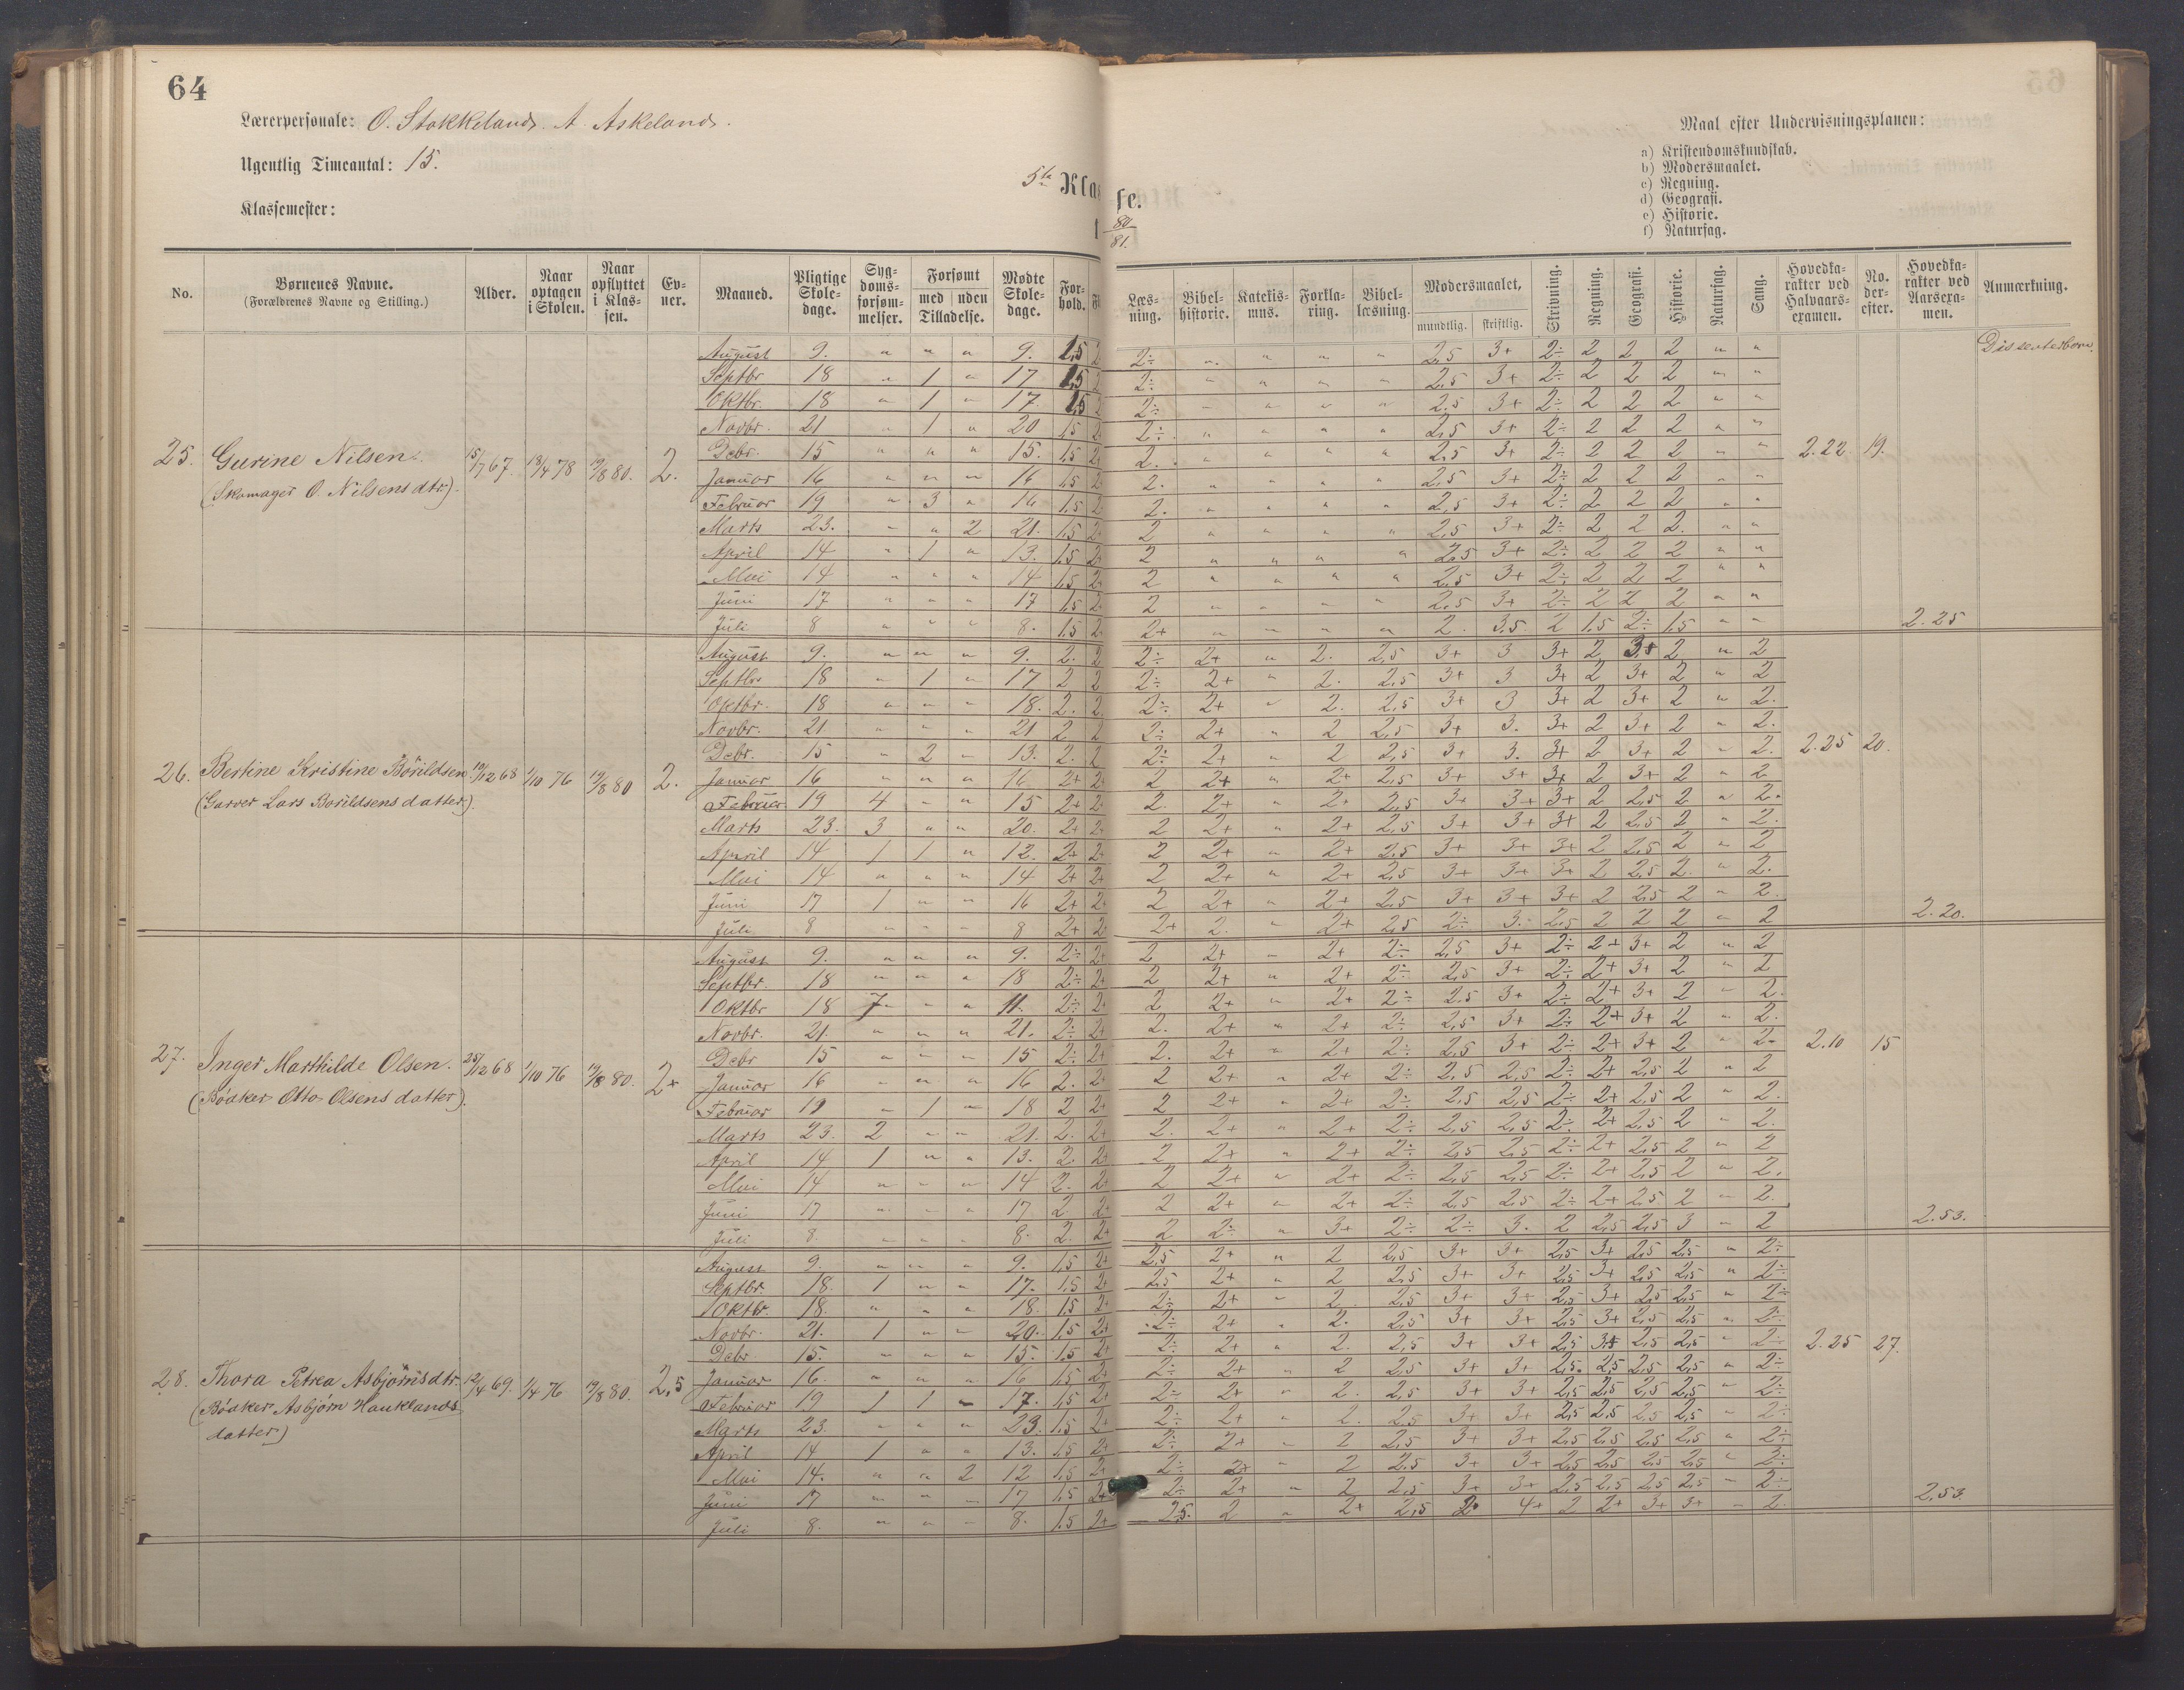 64
Lærerpersonale: O. Stokkeland. A. Askeland.
Ugentlig Timeantal: 15.
Klassemester:
5te Klasse.
80/81.
Maal efter Undervisningsplanen:
a) Kristendomskundskab.
b) Modersmaalet.
c) Regning.
d) Geografi.
e) Historie.
f) Naturfag.
No. Børnenes Navne. (Forældrenes Navne og Stilling.) Alder. Naar optagen i Skolen. Naar opflyttet i Klassen. Evner. Maaned. Pligtige Skoledage. Sygdomsforsømmelser. Forsømt med uden Tilladelse. Mødte Skoledage. Forhold. Læsning. Bibelhistorie. Katekismus. Forklaring. Bibellæsning. Modersmaalet, mundtlig. skriftlig. Skrivning. Regning. Geografi. Historie. Naturfag. Sang. Hovedkarakter ved Halvaarsexamen. No. derefter. Hovedkarakter ved Aarsexamen. Anmærkning.
August 9. " " " 9. 1,5 2 2÷ " " " " 2,5 3+ 2÷ 2 2 2 " " Dissenterbarn.
Septbr 18 " 1 " 17 1,5 2 2÷ " " " " 2,5 3+ 2÷ 2 2 2 " "
Oktbr. 18 " 1 " 17. 1,5 2 2÷ " " " " 2,5 3+ 2÷ 2 2 2 " "
Novbr. 21 " 1 " 20 1,5 2 2÷ " " " " 2,5 3+ 2÷ 2 2 2 " "
25. Gurine Nilsen. 15/7 67. 18/4 78 19/8 80. 2. Debr. 15 " " " 15. 1,5 2 2. " " " " 2,5 3+ 2÷ 2 2 2 " " 2.22. 19.
(Skomager O. Nilsens dtr.). Januar 16 " " " 16 1,5 2 2. " " " " 2,5 3+ 2÷ 2 2 2 " "
Februar 19 " 3 " 16 1,5 2 2. " " " " 2,5 3+ 2÷ 2 2 2 " "
Marts 23. " " 2 21. 1,5 2 2 " " " " 2,5 3+ 2÷ 2 2 2. " "
April 14 " 1 " 13. 1,5 2 2 " " " " 2,5 3+ 2÷ 2 2 2 " "
Mai 14 " " " 14 1,5 2 2 " " " " 2,5 3+ 2÷ 2 2 2 " "
Juni 17 " " " 17 1,5 2 2 " " " " 2,5 3+ 2÷ 2 2 2 " "
Juli 8 " " " 8. 1,5 2 2+ " " " " 2. 3,5 2 1,5 2÷ 1,5 " " 2.25
August 9. " " " 9. 2. 2 2÷ 2+ " 2. 2,5 3+ 3 3+ 2 3+ 2 " 2
Septbr 18 " 1 " 17 2 2 2÷ 2+ " 2. 2,5 3+ 3 3+ 2 3+ 2 " 2
Oktbr. 18 " " " 18. 2. 2 2÷ 2+ " 2. 2,5 3+ 3 3+ 2 3+ 2 " 2.
Novbr. 21 " " " 21 2 2 2÷ 2+ " 2 2,5 3+ 3. 3+ 2 3+ 2 " 2.
26. Bertine Kristine Börildsen 19/12 68 1/10 76 19/8 80 2. Debr. 15 " 2 " 13. 2. 2 2÷ 2+ " 2 2,5 3+ 3. 3+ 2 3+ 2 " 2. 2.25 20.
(Garver Lars Borildsens datter). Januar 16 " " " 16 2+ 2 2 2+ " 2+ 2,5 3+ 3+ 3+ 2 3+ 2 " 2
Februar 19 4 " " 15 2+ 2 2. 2+ " 2+ 2,5 3+ 3+ 3+ 2 2,5 2 " 2.
Marts 23. 3 " " 20. 2+ 2 2 2+ " 2+ 2,5 3+ 3+ 3+ 2 2,5 2 " 2.
April 14 1 1 " 12. 2+ 2 2 2+ " 2+ 2,5 3+ 3+ 3+ 2 2,5 2 " 2
Mai 14 " " " 14 2+ 2+ 2 2+ " 2+ 2,5 3+ 3+ 3+ 2 2,5 2. " 2.
Juni 17 1 " " 16 2+ 2 2 2+ " 2+ 2,5 3+ 3+ 3+ 2 2,5 2 " 2.
Juli 8 " " " 8 2+ 2 2+ 2. " 2+ 2,5 2÷ 3. 2,5 2 2 2 " 2 2.20.
August 9. " " " 9. 2÷ 2+ 2 2+ " 2+ 2÷ 2,5 3+ 2÷ 2+ 3+ 2 " 2
Septbr. 18 " " " 18 2÷ 2+ 2 2+ " 2+ 2÷ 2,5 3+ 2÷ 2+ 3+ 2 " 2
Oktbr 18 7 " " 11. 2÷ 2+ 2 2+ " 2+ 2÷ 2,5 3+ 2÷ 2+ 3+ 2 " 2.
Novbr. 21. " " " 21. 2÷ 2+ 2. 2+ " 2+ 2÷ 2,5 3+ 2÷ 2+ 3+ 2 " 2.
27. Inger Marthilde Olsen. 25/12 68 1/10 76 19/8 80. 2+ Debr 15 " " " 15 2÷ 2+ 2. 2+ " 2+ 2÷ 2,5 3+ 2÷ 2+ 3+ 2 " 2. 2.10 15
(Bödker Otto Olsens datter). Januar 16 " " " 16 2. 2+ 2 2+ " 2+ 2÷ 2,5 2,5 2÷ 2+ 2,5 2 " 2
Februar 19 " 1 " 18 2 2+ 2 2+ " 2+ 2÷ 2,5 2,5 2÷ 2+ 2,5 2 " 2.
Marts 23. 2 " " 21. 2. 2+ 2. 2+ " 2+ 2÷ 2,5 2,5 2÷ 2+ 2,5 2 " 2.
April 14 1 " " 13. 2. 2+ 2 2+ " 2+ 2÷ 2,5 2,5 2÷ 2+ 2,5 2 " 2
Mai 14 " " " 14 2. 2+ 2 2+ " 2+ 2÷ 2,5 2,5 2÷ 2+ 2,5 2 " 2.
Juni 17 " " " 17 2 2+ 2 2+ " 2+ 2÷ 2,5 2,5 2÷ 2+ 2,5 2 " 2.
Juli 8. " " " 8. 2. 2+ 2 2÷ " 3+ 2÷ 2÷ 3. 2 2,5 2,5 3 " 2 2.53.
August 9. " " " 9. 1,5 2+ 2,5 2+ " 2 2,5 3+ 3+ 2,5 3+ 2,5 2,5 " 2÷
Septbr. 18. 1 " " 17. 1,5 2+ 2,5 2+ " 2 2,5 3+ 3+ 2,5 3+ 2,5 2,5 " 2÷
Oktbr. 18. " " " 18. 1,5 2+ 2÷ 2+ " 2. 2,5 3+ 3+ 2,5 3+ 2,5 2,5 " 2÷
Novbr. 21. 1 " " 20. 1,5 2+ 2÷ 2+ " 2. 2,5 3+ 3+ 2,5 3+ 2,5 2,5 " 2÷
Debr. 15. " " " 15. 1,5 2+ 2÷ 2+ " 2. 2,5 3+ 3+ 2,5 3+ 2,5 2,5 " 2÷ 2.25 27.
28. Thora Petrea Asbjörnsdtr. 12/4 69. 1/4 76 19/8 80. 2,5 Januar 16. " " " 16 1,5 2+ 2÷ 2+ " 2 2,5 3+ 3+ 2,5 2,5 2,5 2,5 " 2÷
(Bödker Asbjörn Hauklands Februar 19 1 1 " 17. 1,5 2+ 2÷ 2+ " 2. 2,5 3+ 3+ 2,5 2,5 2,5 2,5 " 2÷
datter) Marts 23. " " " 23. 1,5 2+ 2÷ 2+ " 2. 2,5 3+ 3+ 2,5 2,5 2,5 2,5 " 2÷
April 14 1 " " 13. 1,5 2+ 2÷ 2+ " 2 2,5 3+ 3+ 2,5 2,5 2,5 2,5 " 2÷
Mai 14. " " 2 12 1,5 2+ 2÷ 2+ " 2 2,5 3+ 3+ 2,5 2,5 2,5 2,5 " 2÷
Juni 17 " " " 17 1,5 2+ 2÷ 2+ " 2 2,5 3+ 3+ 2,5 2,5 2,5 2,5 " 2÷
Juli 8. " " " 8. 1,5 2+ 2,5. 2 " 2+ 2,5 2+ 4+ 2 2+ 3+ 3+ " 2. 2.53.